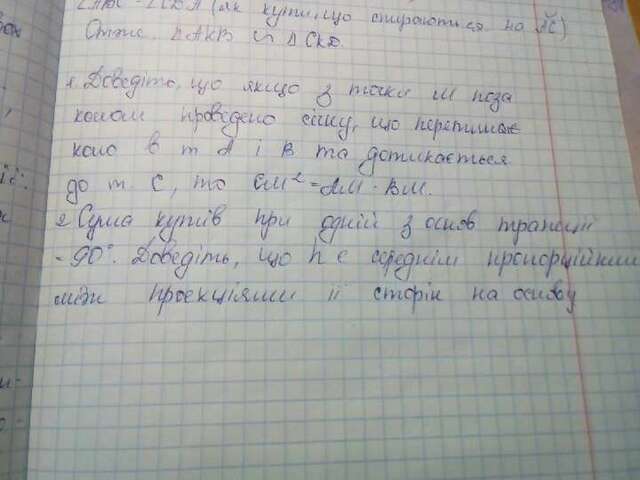 ∠ABC = ∠CDA (як кути, що спираються на AC)
Отже ΔAKB ∾ ΔCKD.
1. Доведіть, що якщо з точки M поза
колом проведено січну, що перетинає
коло в т A і B та дотикається
до т. C, то CM² = AM · BM.
2 Сума кутів при одній з основ трапеції
= 90°. Доведіть, що h є середнім пропорційним
між проекціями її сторін на основу